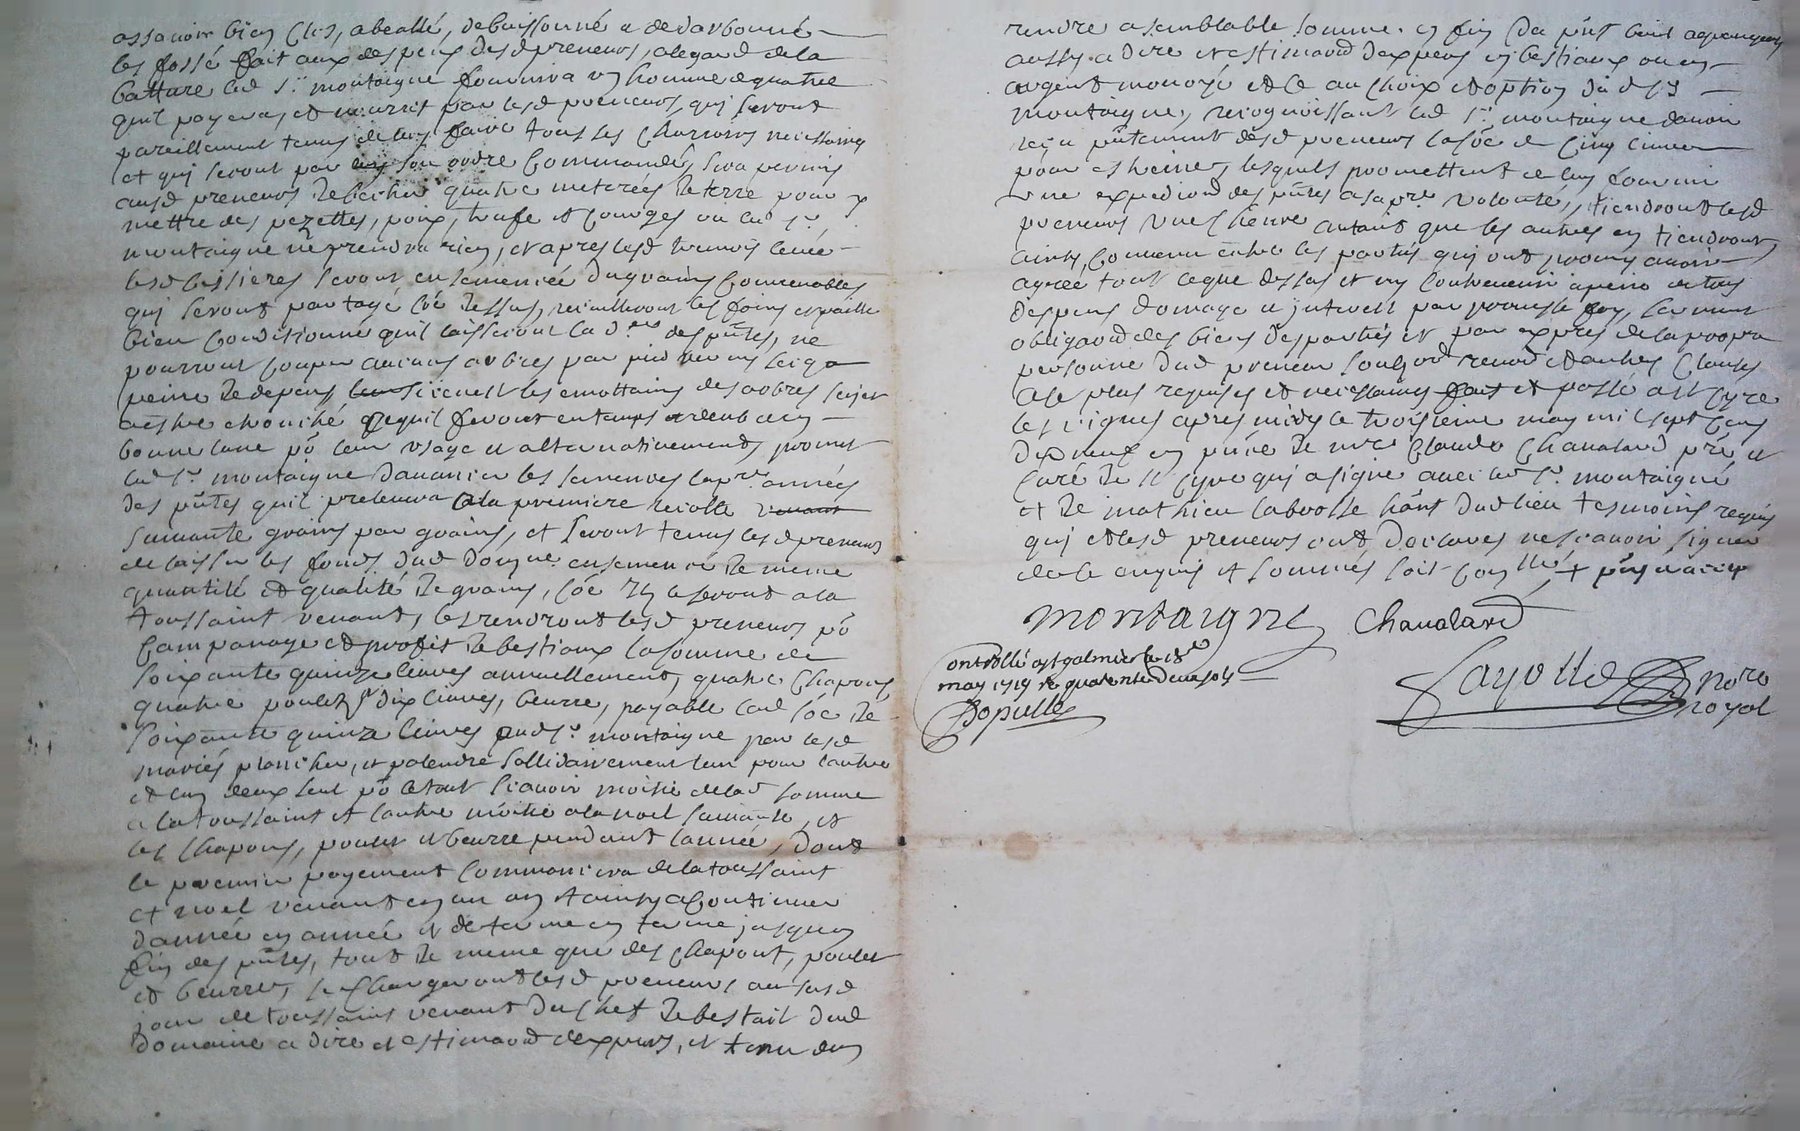 assavoir bien clos, abealté, debuissonné et dedarbonné
les fossé fait aux despens desd preneurs, alegard de la
batture led sr montaigne fournira un homme et quatre
quil payera, et nourrit par lesd preneurs, qui seront
pareillement tenus de luy faire tous les charrois necessaires
et qui seront par son ordre commandés, sera permis
ausd preneurs quatre meterées de terre pour y
mettre des pezettes, poix, trufe et courges ou led sr
montaigne ne prendra rien, et apres lesd tremois levée
lesd seront ensemencée de grains convenables
qui seront partagé cõe dessus, recuilliront les foins et paille
bien conditionné quil laisseront la dre des pñtes, ne
pourront couper aucuns arbres par pied ny en a
peine de depens les emottains des arbres
quil feront en temps et
bonne lune põ leur usage et alternativement, promet
led sr montaigne davancer les semences la pre année
des pñtes quil prelevera a la premiere recolte
suivante grains par grains, et seront tenus lesd preneurs
de laisser les fonds dud domne ensemencé de meme
quantité et qualité de grains, cõe ils le seront a la
toussaint venant, et rendront lesd preneurs põ
et profit de bestiaux la somme de
soixante quinze livres annuellement, quatre chapons,
quatre poulets, dix livres, beurre, payable lad sõe de
soixante quinze livres aud sr montaigne par lesd
mariés plancher, et solidairement lun pour lautre
et lun deux seul põ le tout scavoir moitié de lad somme
a la toussaint et lautre moitié a la noel suivante, et
les chapons, poulet et beurre pendant lannée, dont
le premier payement commancera de la toussaint
et noel venant en un an et ainsy a continuer
dannée en année et de terme en terme jusqua
fin des pñtes, tout de meme que des chapont, poulet
et beurre, se chargeront lesd preneurs ausd
jour de toussaint venant du chef de bestail dud
domaine a dire et estimaõn dexperts, et tenu den
rendre a semblable somme, en fin du pñt bail
aussy a dire et estimaõn dexpers en bestiaux ou en
argent monoyé et ce au choix et option dud sr
montaigne, recognoissant led sr montaigne davoir
reçu desd preneurs la sõe de cinq livres
pour etreines, lesquels promettent de luy fournir
une expedion des pñtes a sa pre volonté, tiendront lesd
preneurs une chevre autant que les autres en tiendront
ainsy convenu entre les parties qui ont promis avoir
agréé tout ceque dessus et ny contrevenir a peine de tous
despens domage et jnterest par promesse foy, serment
obligaon des biens des parties et par expres de la propre
personne dud preneur renon et autres clauses
a ce plus requises et necessaires fait et passé a st cyre
les vignes apres midy le troisieme may mil sept cens
dix neuf en pñce de mre claude Chavalard prẽ et
curé de st cyre qui a signé avec led sr montaigne
et de mathieu labrosse hãnt dud lieu tesmoins requis
qui et lesd preneurs ont declarés ne scavoir signer
de ce enquis et sommés soit
Montaigne Chavalard
Controllé a st galmier le 18e
may 1719 R quarente deux sols
Bopuelle
Fayolle Nore
royal